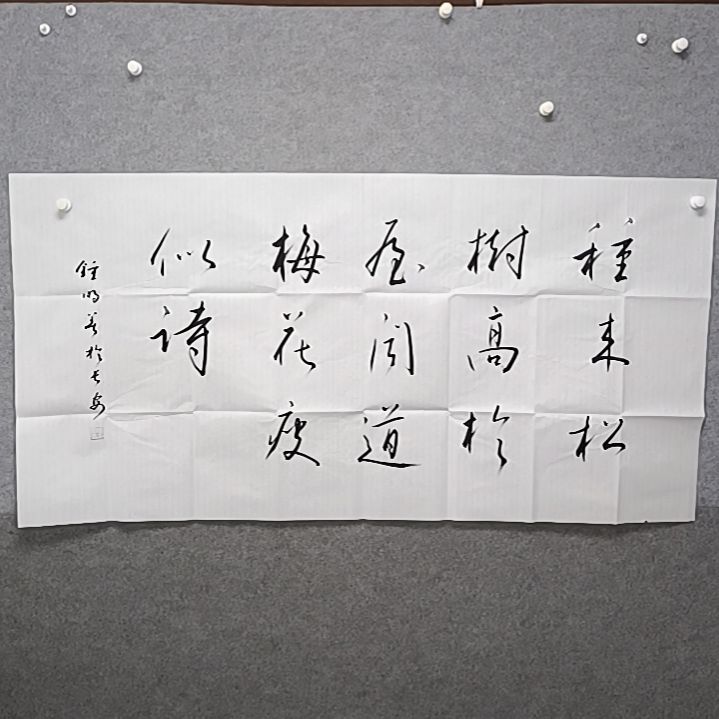 種来松
樹高於
屋聞道
梅花瘦
似詩
鍾明善於長安